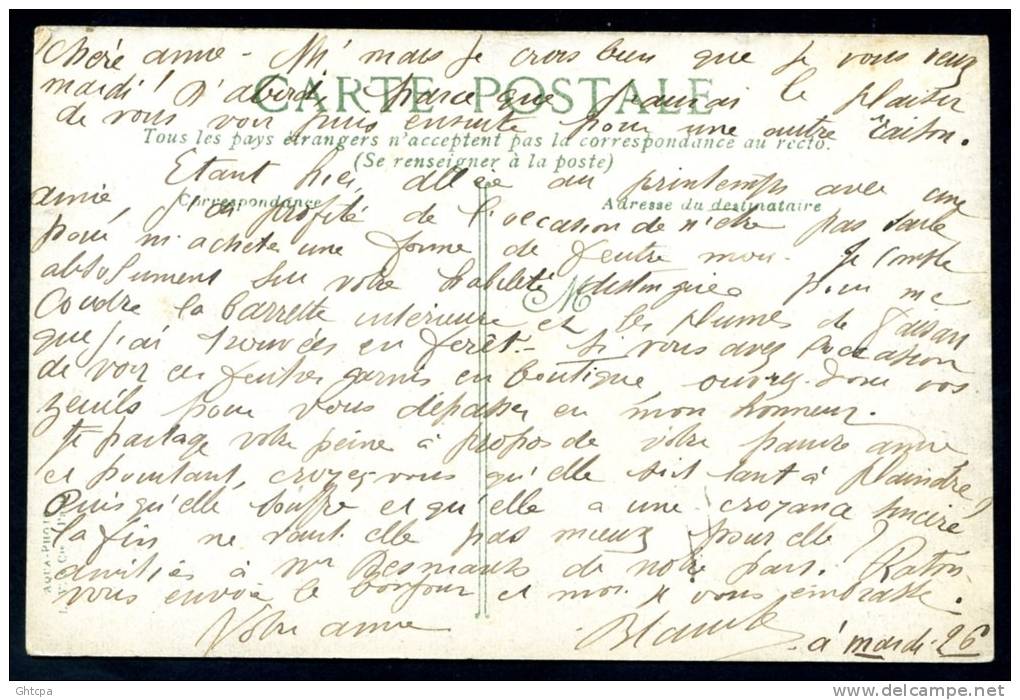 Chère amie - Ah! mais je crois bien que je vous veux
mardi! D'abord parce que j'aurai le plaisir
CARTE POSTALE
de vous voir puis ensuite pour une autre raison.
Tous les pays étrangers n'acceptent pas la correspondance au recto.
(Se renseigner à la poste)
Etant hier allée au printemps avec une
Correspondance
Adresse du destinataire
amie, j'ai profité de l'occasion de n'être pas seule
pour m'acheter une forme de feutre mou. Je compte
absolument sur votre habileté distinguée pour me
M
coudre la barrette intérieure et les plumes de faisan
que j'ai trouvées en forêt - Si vous avez l'occasion
de voir ces feutres garnis en boutique ouvrez donc vos
zeuils pour vous dépasser en mon honneur.
Je partage votre peine à propos de votre pauvre amie
et pourtant, croyez-vous qu'elle soit tant à plaindre
puisqu'elle souffre et qu'elle a une croyance sincère
la fin ne vaut-elle pas mieux pour elle?
AQUA-PHOTO
amitiés à Mr Desmants de notre part. Raton
vous envoie le bonjour et moi je vous embrasse.
Votre amie
Blanche
à mardi 26
Ghtcpa
www.delcampe.net